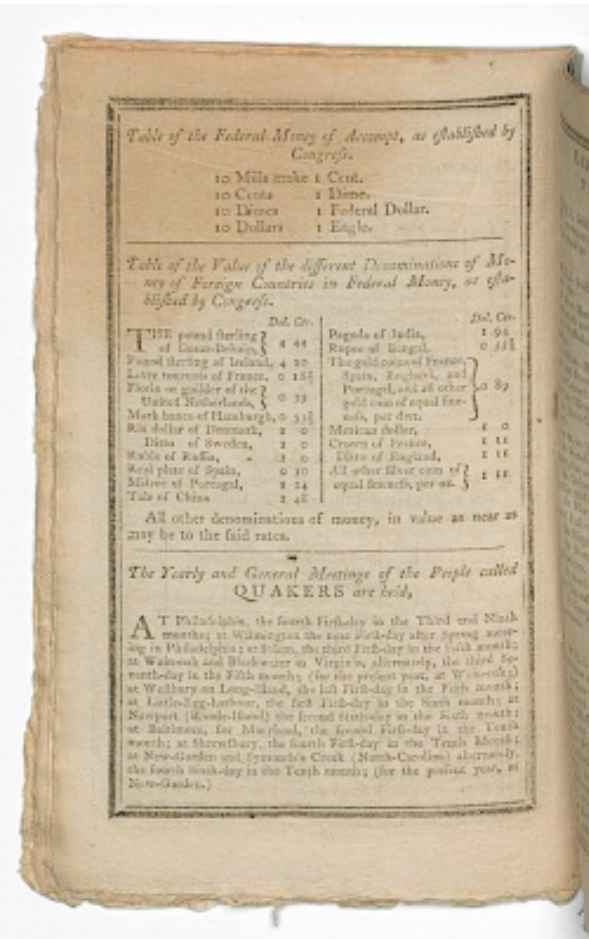 Table of the Federal Money of Accompt, as eſtabliſhed by
Congreſs.
10 Mills make 1 Cent.
10 Cents 1 Dime.
10 Dimes 1 Federal Dollar.
10 Dollars 1 Eagle.
Table of the Value of the different Denominations of Mo-
ney of Foreign Countries in Federal Money, as eſta-
bliſhed by Congreſs.
Dol. Cts.
THE pound ſterling
of Great-Britain, 4 44
Pound ſterling of Ireland, 4 10
Livre tournois of France, 0 18½
Florin or guilder of the
United Netherlands, 0 39
Mark banco of Hamburgh, 0 33⅓
Rix dollar of Denmark, 1 0
Ditto of Sweden, 1 0
Ruble of Ruſſia, 1 0
Real plate of Spain, 0 10
Milree of Portugal, 1 24
Tale of China 1 48
Dol. Cts.
Pagoda of India, 1 94
Rupee of Bengal, 0 55½
The gold coins of France,
Spain, England, and
Portugal, and all other
gold coin of equal fine-
neſs, per dwt. 0 89
Mexican dollar, 1 0
Crown of France, 1 11
Ditto of England, 1 11
All other ſilver coin of
equal fineneſs, per oz. 1 11
All other denominations of money, in value as near as
may be to the ſaid rates.
The Yearly and General Meetings of the People called
QUAKERS are held,
AT Philadelphia, the fourth Firſt-day in the Third and Ninth
months; at Wilmington the next Firſt-day after Spring meet-
ing in Philadelphia; at Salem, the third Firſt-day in the Fifth month;
at and Blackwater in Virginia, alternately, the third Se-
venth-day in the Fifth month; (for the preſent year, at
at Weſtbury on Long-Iſland, the laſt Firſt-day in the Fifth month;
at Little-Egg-harbour, the firſt Firſt-day in the Sixth month; at
Newport (Rhode-Iſland) the ſecond Sixth-day in the Sixth month;
at Baltimore, for Maryland, the ſecond Firſt-day in the Tenth
month; at Shrewſbury, the fourth Firſt-day in the Tenth Month;
at New-Garden and Creek (North-Carolina) alternately,
the fourth Sixth-day in the Tenth month; (for the preſent year, at
New-Garden.)